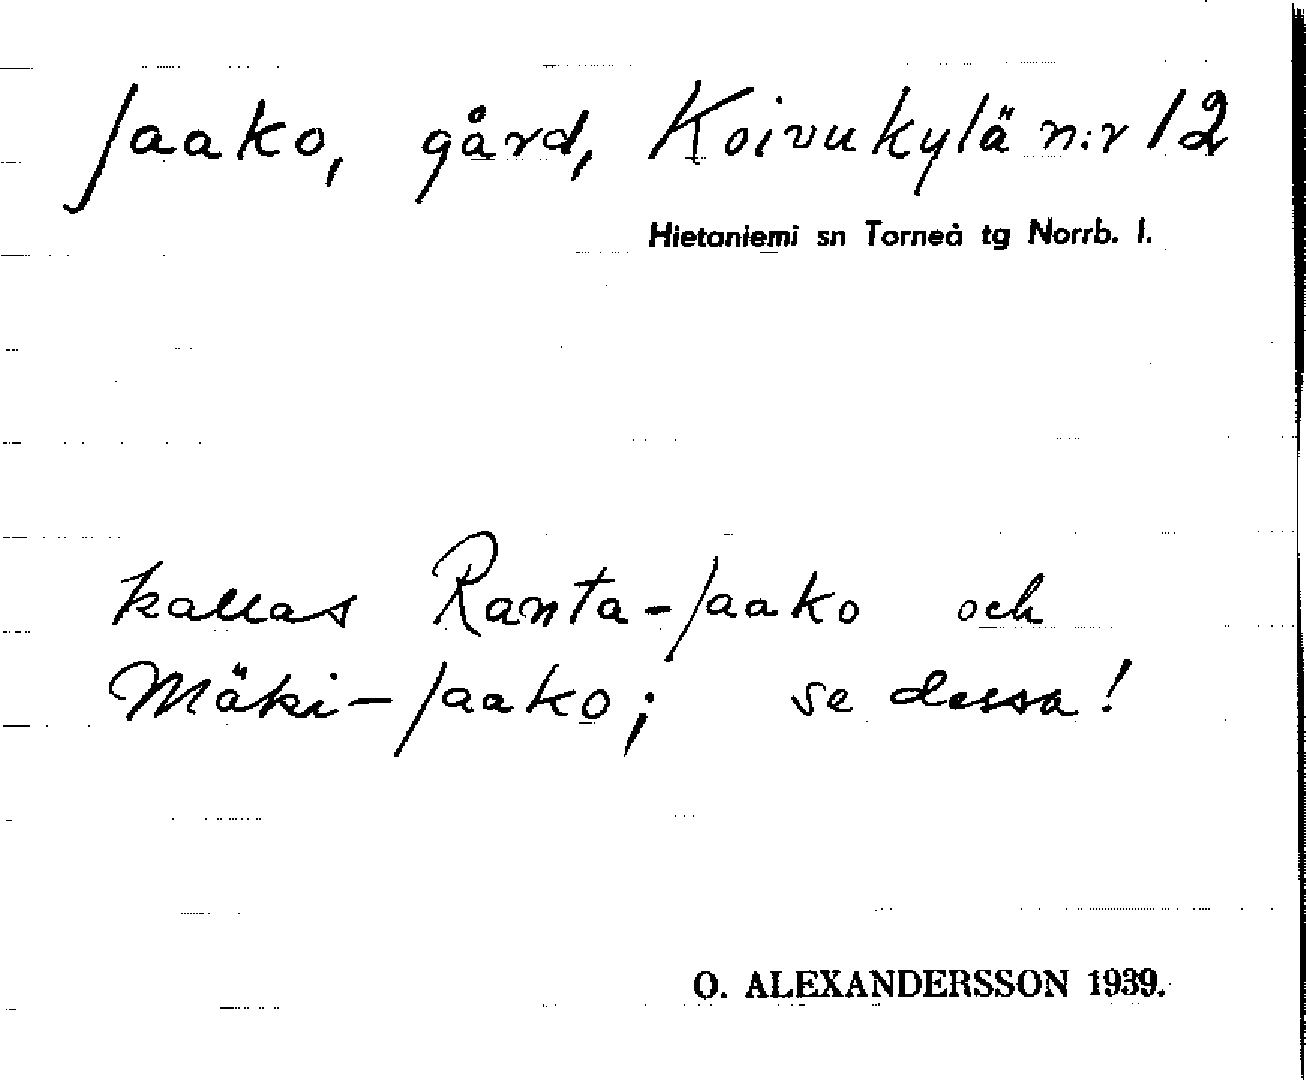 Jaako, gård, Koivukylä n:r 12
Hietaniemi sn Torneå tg Norrb. l.
kallas Ranta-Jaako och
Mäki-Jaako; se dessa!
O. ALEXANDERSSON 1939.